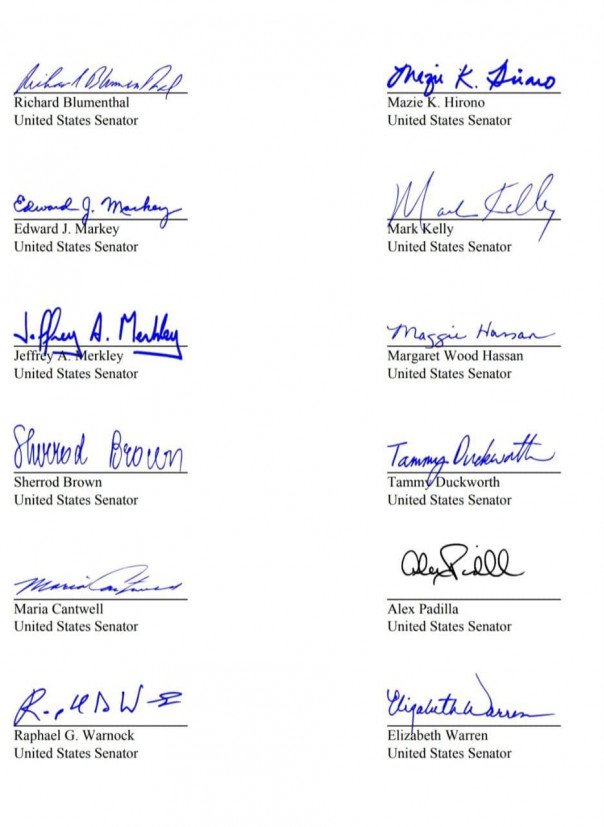 Richard Blumenthal
Richard Blumenthal
United States Senator
Mazie K. Hirono
Mazie K. Hirono
United States Senator
Edward J. Markey
Edward J. Markey
United States Senator
Mark Kelly
Mark Kelly
United States Senator
Jeffrey A. Merkley
Jeffrey A. Merkley
United States Senator
Maggie Hassan
Margaret Wood Hassan
United States Senator
Sherrod Brown
Sherrod Brown
United States Senator
Tammy Duckworth
Tammy Duckworth
United States Senator
Maria Cantwell
Maria Cantwell
United States Senator
Alex Padilla
United States Senator
Raphael G. Warnock
United States Senator
Elizabeth Warren
Elizabeth Warren
United States Senator